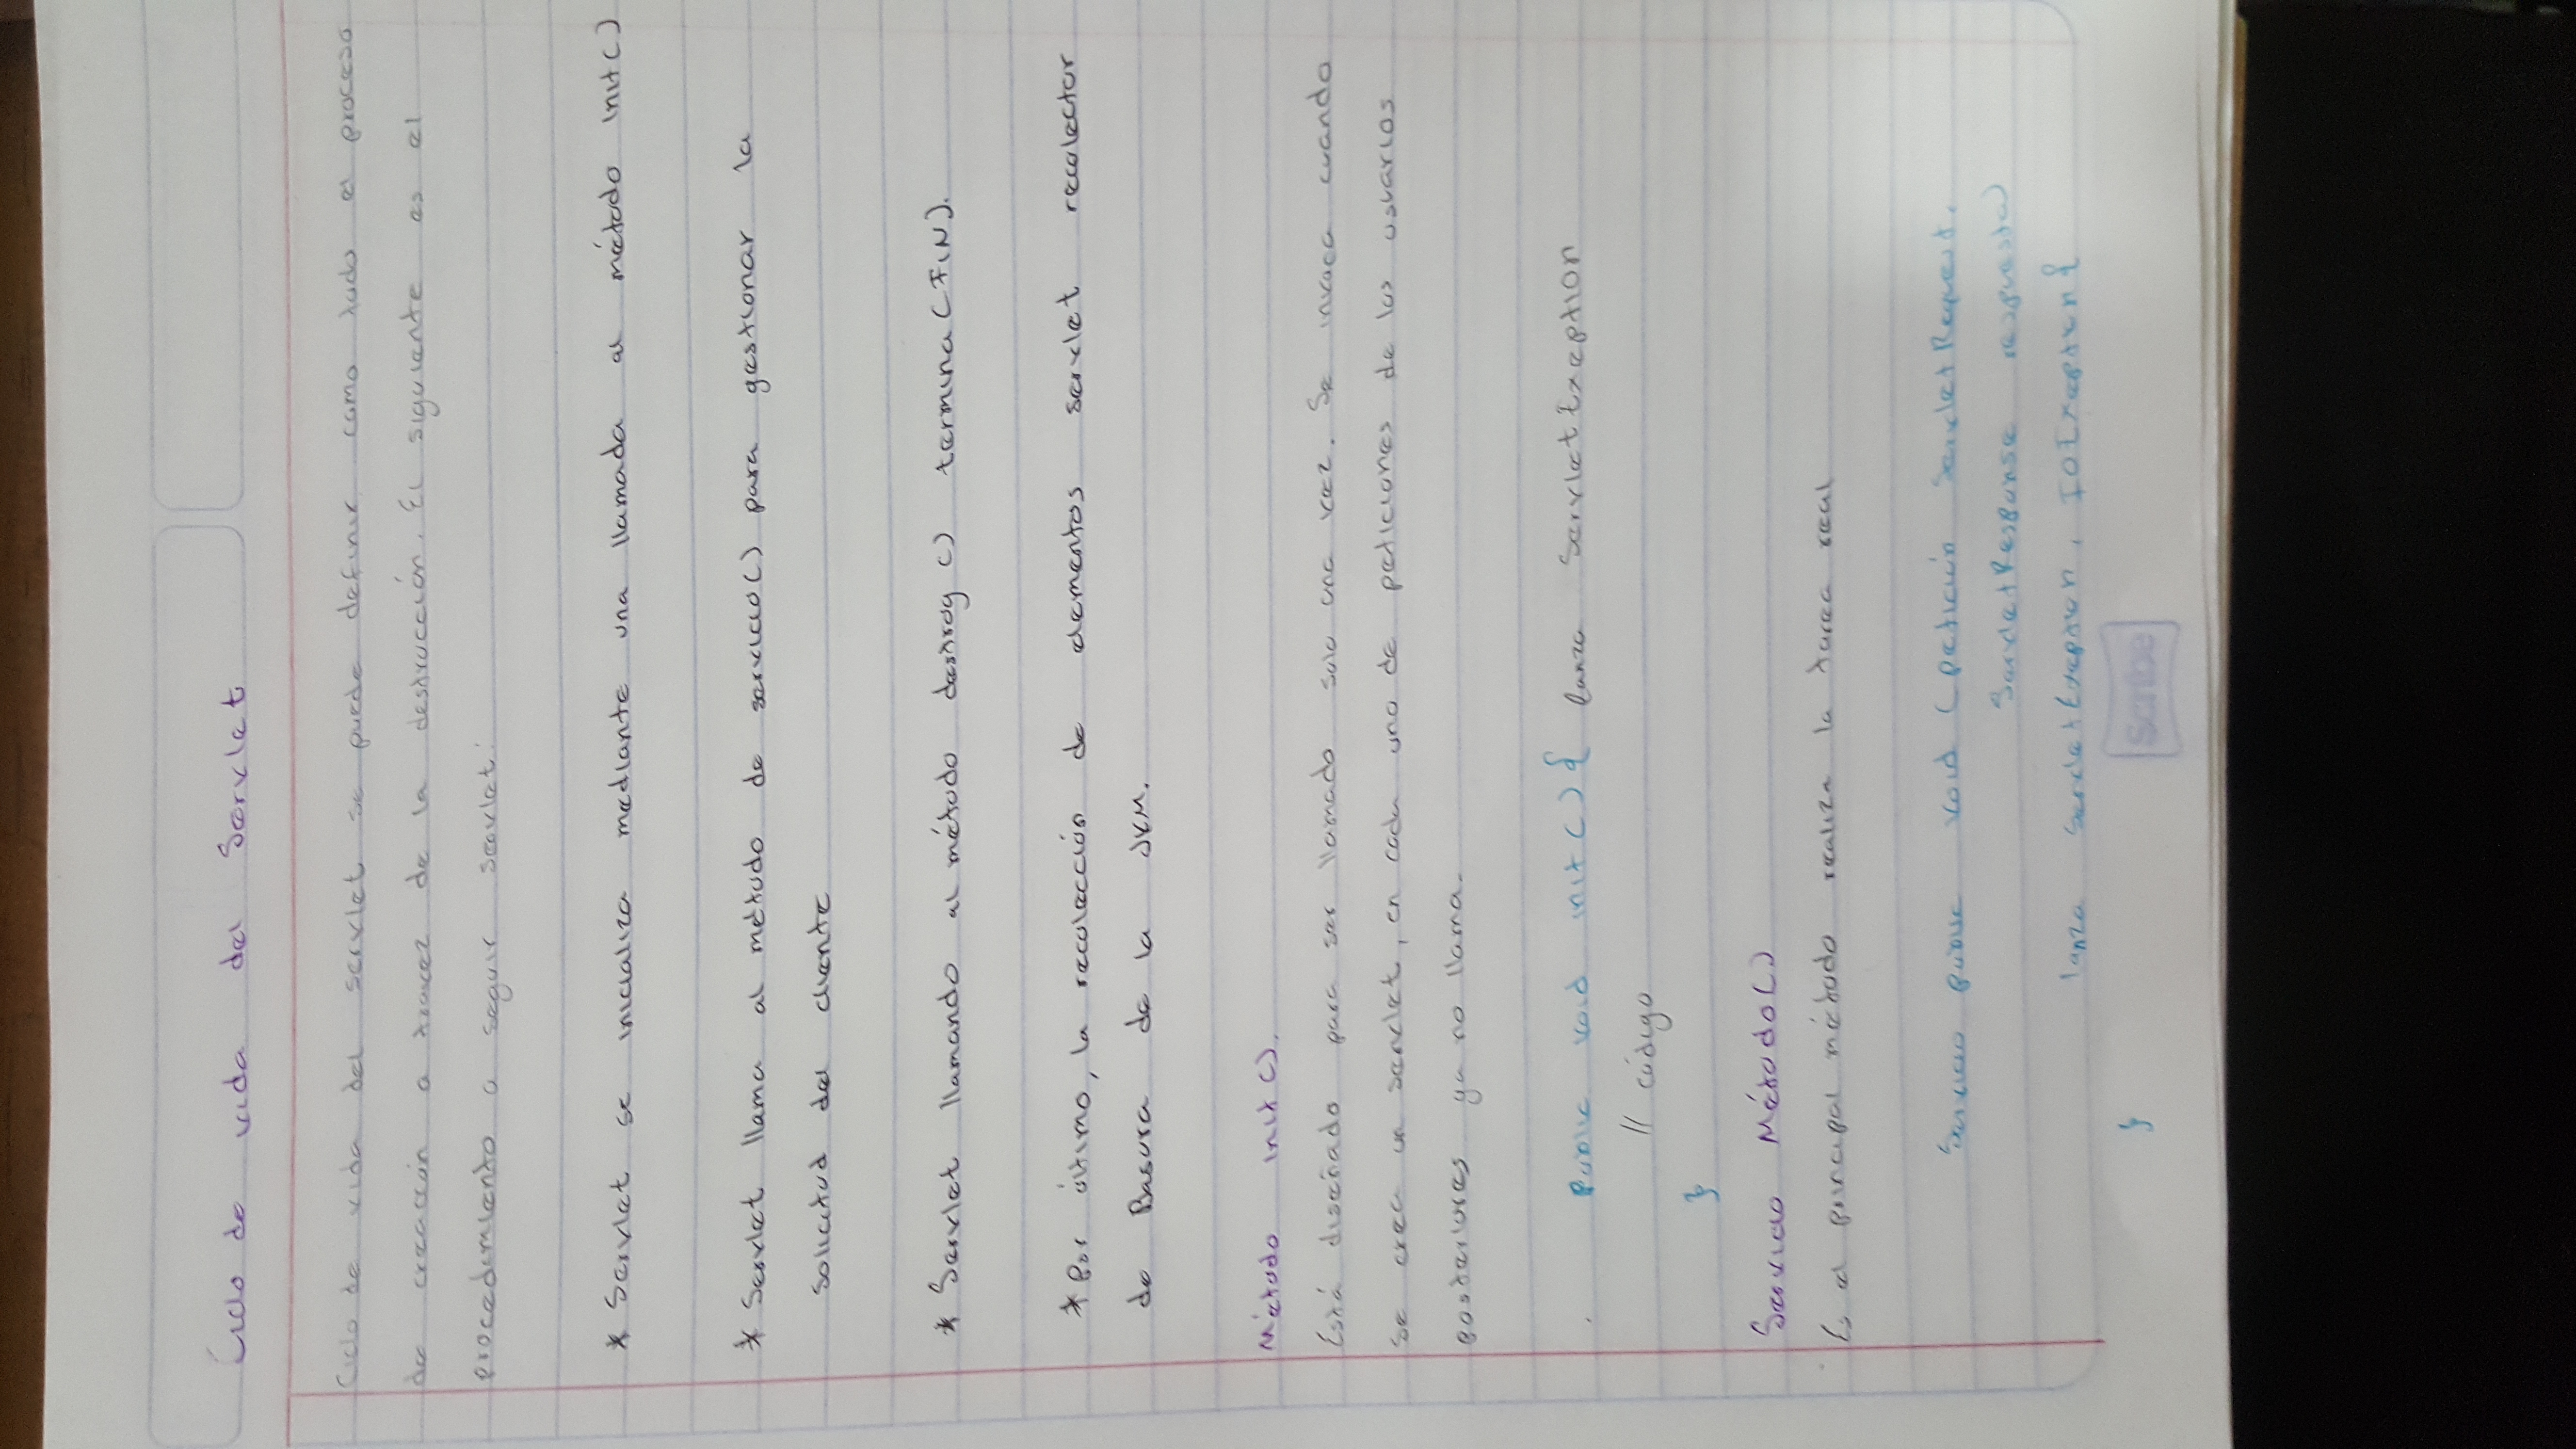 Ciclo de vida del Servlet
Ciclo de vida del servlet se puede definir como todo el proceso
de creacción a travez de la destrucción. El siguiente es el
procedimiento a seguir servlet:
* Servlet se inicializa mediante una llamada al método init()
* Servlet llama al método de servicio() para gestionar la
solicitud del cliente
* Servlet llamando al método destroy() termina (FIN).
* Por último, la recolección de elementos servlet recolector
de Basura de la JVM.
Método init().
Está diseñado para ser llamado solo una vez. Se invoca cuando
se crea un servlet, en cada uno de peticiones de los usuarios
posteriores ya no llama.
Public void init(){ lanza ServletExeption
// código
}
Servicio Método()
Es el principal método realiza la tarea real
Servicio public void (petición ServletRequest,
ServletResponse respuesta)
lanza ServletExeption, IOExeption{
}
Scribe